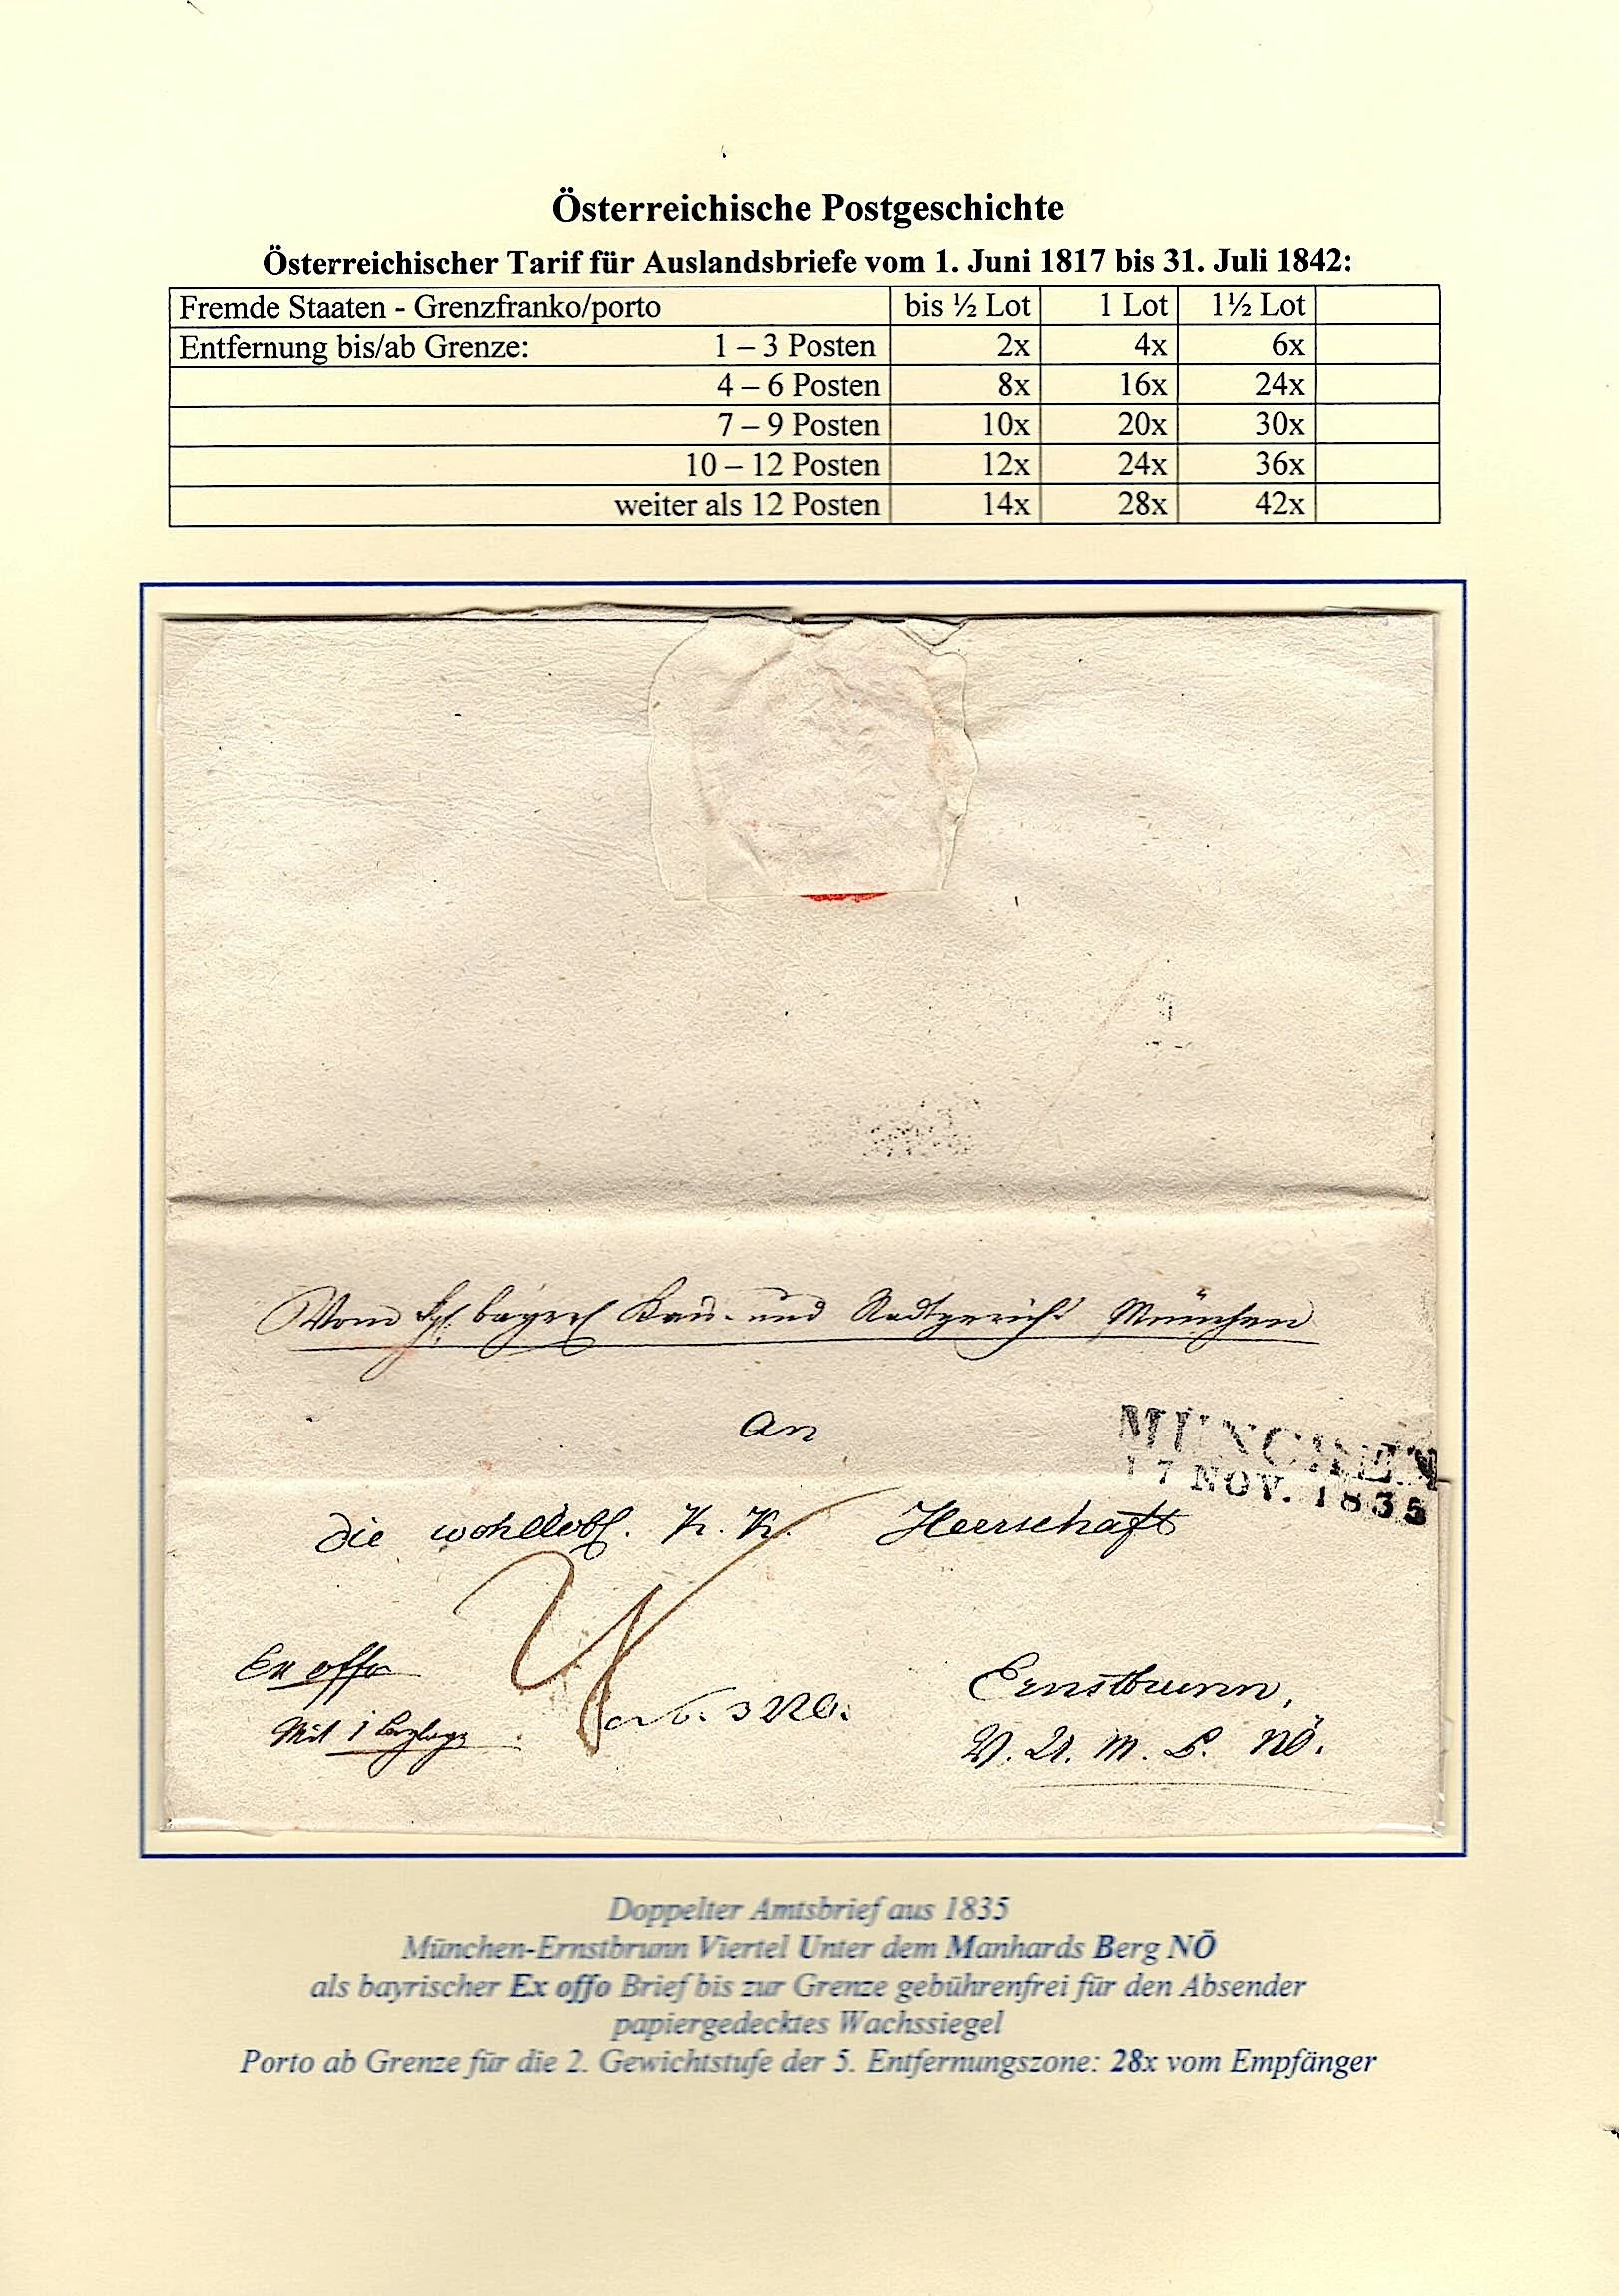 Österreichische Postgeschichte
Österreichischer Tarif für Auslandsbriefe vom 1. Juni 1817 bis 31. Juli 1842:
Fremde Staaten - Grenzfranko/porto bis ½ Lot 1 Lot 1½ Lot
Entfernung bis/ab Grenze: 1 – 3 Posten 2x 4x 6x
4 – 6 Posten 8x 16x 24x
7 – 9 Posten 10x 20x 30x
10 – 12 Posten 12x 24x 36x
weiter als 12 Posten 14x 28x 42x
Vom bayer und Stadtgericht München
An
MÜNCHEN
17 NOV. 1835
die wohllöbl. K. K. Herrschaft
Ex offo
Ernstbrunn,
Mit 1 Beylage
V. U. M. B. NÖ.
Doppelter Amtsbrief aus 1835
München-Ernstbrunn Viertel Unter dem Manhards Berg NÖ
als bayrischer Ex offo Brief bis zur Grenze gebührenfrei für den Absender
papiergedecktes Wachssiegel
Porto ab Grenze für die 2. Gewichtstufe der 5. Entfernungszone: 28x vom Empfänger